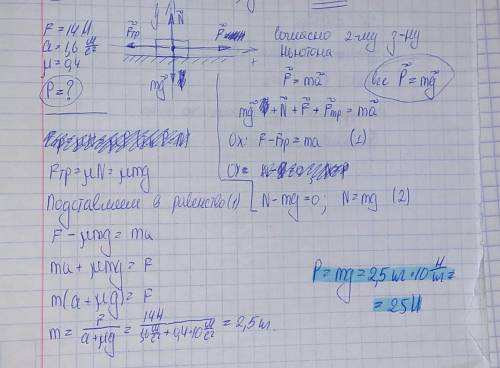 F = 14 Н
a = 1,6 м/с²
μ = 0,4
P = ?
Fтр N F
+
mg
Согласно 2-му з-ну
Ньютона
F = ma
вес P = mg
mg + N + F + Fтр = ma
Ox: F - Fтр = ma (1)
N - mg = 0; N = mg (2)
Fтр = μN = μmg
Подставляем в равенство (1)
F - μmg = ma
ma + μmg = F
m(a + μg) = F
m = F/(a + μg) = 14Н/(1,6 м/с² + 0,4·10 м/с²) = 2,5 кг.
P = mg = 2,5 кг · 10 Н/кг =
= 25 Н